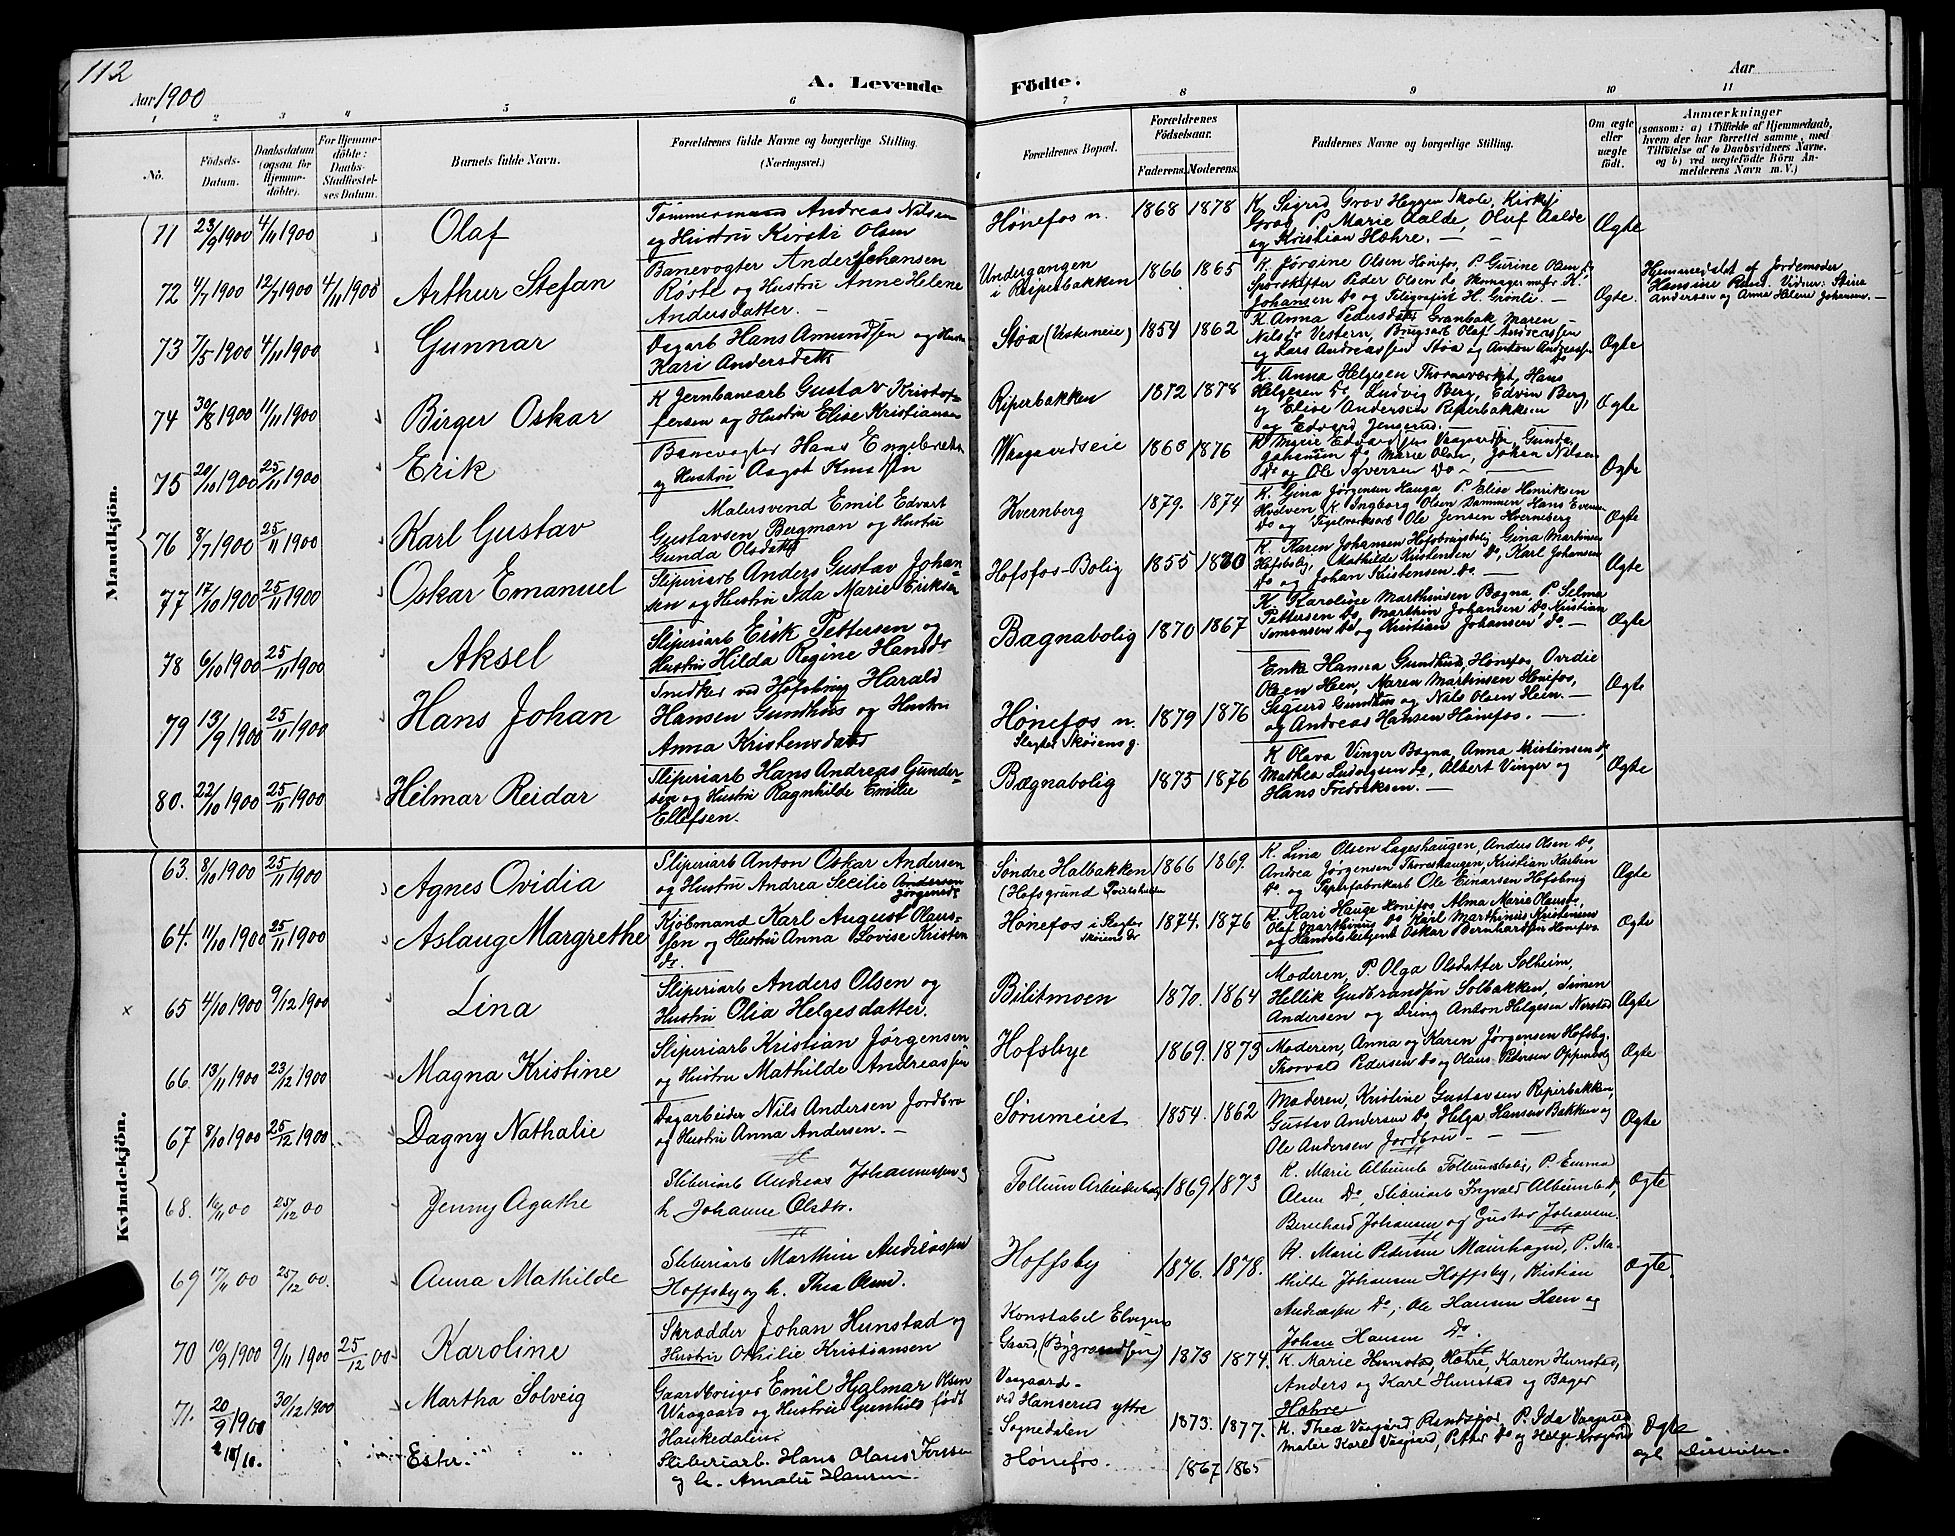 112
Aar 1900
A. Levende Födte.
Aar
1 2 3 4 5 6 7 8 9 10 11
No.
Födsels-Datum.
Daabsdatum (ogsaa för Hjemmedöbte).
For Hjemmedöbte: Daabs-Stadfæstelses Datum.
Barnets fulde Navn.
Forældrenes fulde Navne og borgerlige Stilling. (Næringsvei.)
Forældrenes Bopæl.
Forældrenes Födselsaar.
Faderens. Moderens.
Faddernes Navne og borgerlige Stilling.
Om ægte eller uægte födt.
Anmærkninger
(saasom: a) i Tilfælde af Hjemmedaab, hvem der har forrettet samme, med Tilföielse af to Daabsvidners Navne. og b) ved uægtefödte Börn Anmelderens Navn m. V.)
Mandkjön.
71 23/9 1900 4/11 1900 Olaf
Tømmermand Andreas Nilsen
og Hustru Kirsti Olsen
Hønefos n. 1868 1878
K. Sigrid Grov Heggen Skole, Kirkesj
Grov P. Marie Aalde, Oluf Aalde
og Kristian Hæhre.
Ægte
72 4/7 1900 12/7 1900 4/11 1900 Arthur Stefan
Banevogter Anders Johansen
Røste og Hustru Anne Helene
Andersdatter.
Undergangen
i Reiperbakken 1866 1865
K. Jørgine Olsen Hønefos, P. Gurine Olsen do
Sporskifter Peder Olsen do Skomagermefr K.
Johansen Do og Teligrafist H. Grønli.
Ægte.
Hjemmedøbt af Jordemoder
Hansine Ruud. Vidner: Stina
Andersen og Anna Helene Johansen.
73 7/5 1900 4/11 1900 Gunnar
Dagarb Hans Amundsen og Hustru
Kari Andersdatt
Støa (Veskeneie) 1854 1862
K. Anna Pedersdatt Granbak Maren
Nilsdr Vestern, Brugsarb Olaf Andreassen
og Lars Andreassen Støa og Anton Andreassen
Do
Ægte
74 30/8 1900 11/11 1900 Birger Oskar
K Jernbanearb Gustav Kristof-
fersen og Hustru Elise Kristiansen
Riperbakken 1872 1878
K. Anna Helgesen Thoresværket, Hans
Helgesen Do, Ludvig Berg, Edvin Berg,
og Elise Andersen Reperbakken
og Edvard Jenserud.
Ægte
75 20/10 1900 25/11 1900 Erik
Banevogter Hans Engebretsen
og Hustru Aagot Knutsen
Waagaardseie 1863 1876
K. Marie Edvardsen Vaagaard, Gunda
Johansen Do, Marie Olsen, Johan Nilsen
Do og Ole Iversen Do
Ægte
76 8/7 1900 25/11 1900 Karl Gustav
Malersvend Emil Edvart
Gustavsen Bergman og Hustru
Gunda Olsdatt
Kvernberg 1879. 1874
K. Gina Jørgensen Hauga P. Elise Henriksen
Hvilven K Ingborg Olsen Dammen Hans Evensen
Do og Tegelværksarb Ole Jensen Kvernberg
Ægte
77 17/10 1900 25/11 1900 Oskar Emanuel
Sliperiarb Anders Gustav Johan-
sen og Hustru Ida Marie Eriksen
Hofsfos-Bolig 1855 1860
K. Karen Johansen Hofsbrugsbolig Gina Martinsen
Hofsbolig, Mathilde Kristensen Do, Karl Johansen
Do og Johan Kristensen. Do
Ægte
78 6/10 1900 25/11 1900 Aksel
Sliperiarb Erik Pettersen og
Hustru Hilda Regine Hansdr
Bagnabolig 1870 1867
K. Karoline Marthinsen Bagna, P. Selma
Pettersen Do, Marthin Johansen Do Kristian
Simensen Do og Kristian Johansen Do.
Ægte
79 13/9 1900 25/11 1900 Hans Johan
Snedker ved Hofsbrug Harald
Hansen Gundhus og Hustru
Anna Kristensdatt
Hønefos n. 1879 1876
Slagter Skøiensg.
Enke Hanna Gundhus, Hønefos, Ovidie
Olsen Heen, Maren Martinsen Hønefos,
Sigurd Gundhus og Nils Olsen Heen.
og Andreas Hansen Hønefos.
Ægte
80. 22/10 1900 25/11 1900 Hilmar Reidar
Sliperiarb Hans Andreas Gunder-
sen og Hustru Ragnhilde Emilie
Ellefsen.
Bægnabolig 1875 1876
K Olava Vinger Bagna, Anna Kristensen do
Mathea Ludvigsen do, Albert Vinger og
Hans Fredriksen.
Ægte
Kvindekjön.
63. 8/10 1900 25/11 1900 Agnes Ovidia
Sliperiarb Anton Oskar Andersen
og Hustru Andrea Secilie Andersen
Jørgensdr
Søndre Halbakken 1866 1869.
(Hofsgrund
K. Lina Olsen Lageshaugen, Anders Olsen Do,
Andrea Jørgensen Thoreshaugen, Kristian Karlsen
Do. og Paperfabrikarb Ole Einarsen Hofsbrug
Ægte
64. 11/10 1900 25/11 1900 Aslaug Margrethe
Kjøbmand Karl August Olaus-
sen og Hustru Anna Lovise Kristen
dr.
Hønefos i Slagter
Skøiens Gr 1874. 1876
K. Kari Hauge Hønefos, Alma Marie Olausdr,
Olaf Marthinus Do Karl Marthinus Kristensen
og Handelsbetjent Oskar Bernhardsen Hønefos.
Ægte
x 65 4/10 1900 9/12 1900 Lina
Sliperiarb Anders Olsen og
Hustru Olia Helgesdatter.
Bilitmoen 1870. 1864
Moderen, P. Olga Olsdatter Solheim,
Hellik Gudbrandsen Solbakken, Simen
Andersen og Dreng Anton Helgesen Nerstad
Ægte
66. 13/11 1900 23/12 1900 Magna Kristine
Sliperiarb Kristian Jørgensen
og Hustru Mathilde Andreassen
Hofsbye 1869. 1873
Moderen, Anna og Karen Jørgensen Hofsby.
Thorvald Pedersen Do og Olaus Petersen Oppenhol
Ægte
67 8/10 1900 25/12 1900 Dagny Nathalie
Dagarbeider Nils Andersen Jordbro
og Hustru Anna Andersen.
Sørumeiet 1854. 1862
Moderen, Kristine Gustavsen Reperbakken,
Gustav Andersen Do, Helga Hansen Bakken og
Ole Andersen Jordbru.
Ægte
68. 16/11 00 25/12 00 Jenny Agathe
Sliberiarb Andreas Johannessen og
h. Johanne Olsdtr.
Follum Arbeiderbolig 1869 1873
K. Marie Albumb Follumsbolig, P. Emma
Olsen Do, Sliberiarb Ingvald Albumb Do,
Bernhard Johansen og Gustav Johansen.
Ægte
69 17/11 00 25/12 00. Anna Mathilde
Sliberiarb Marthin Andreassen
Hoffsby og h. Thea Olsen.
Hoffsby 1876. 1878.
K. Marie Pedersen Maurhagen, P. Ma-
thilde Johansen Hoffsby, Kristian
Andreassen Do, Ole Hansen Heen og
Johan Hansen Do.
Ægte.
70 10/9 1900 9/11 1900 25/12 00 Karoline
Skrædder Johan Hunstad og
Hustru Othilie Kristiansen
Konstabel Elvigens
Gaard, (Bygrændsen) 1873 1874.
K. Marie Hunstad, Hæhre, Karen Hunstad,
Anders og Karl Hunstad og Bager
Hæhre
71. 20/9 1900 30/12 1900 Martha Solveig
Gaardbruger Emil Hjalmar Olsen
Waagaard og Hustru Gunhild født
Haukedalen.
Vaagaard
ved Hanserud yttre
Sognedalen 1873. 1877.
K. Thea Vaagård Randsfjor, P. Ida Vaagaard
Maler Karl Vaagård, Petter Do og Helge Kragerud
Ægte
18/10. Ester.
Sliberiarb. Hans Olaus Iversen
og h. Amalie Hansen
Hønefos. 1867 1865
ægt. Dissenter.